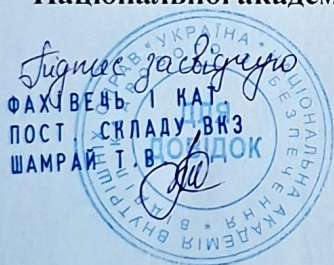 Національної академ
Підпис засвідчую
ФАХІВЕЦЬ І КАТ
ПОСТ. СКЛАДУ ВКЗ
ШАМРАЙ Т.В
УКРАЇНА
НАЦІОНАЛЬНА АКАДЕМІЯ ВНУТРІШНІХ СПРАВ
ДЛЯ
ДОВІДОК